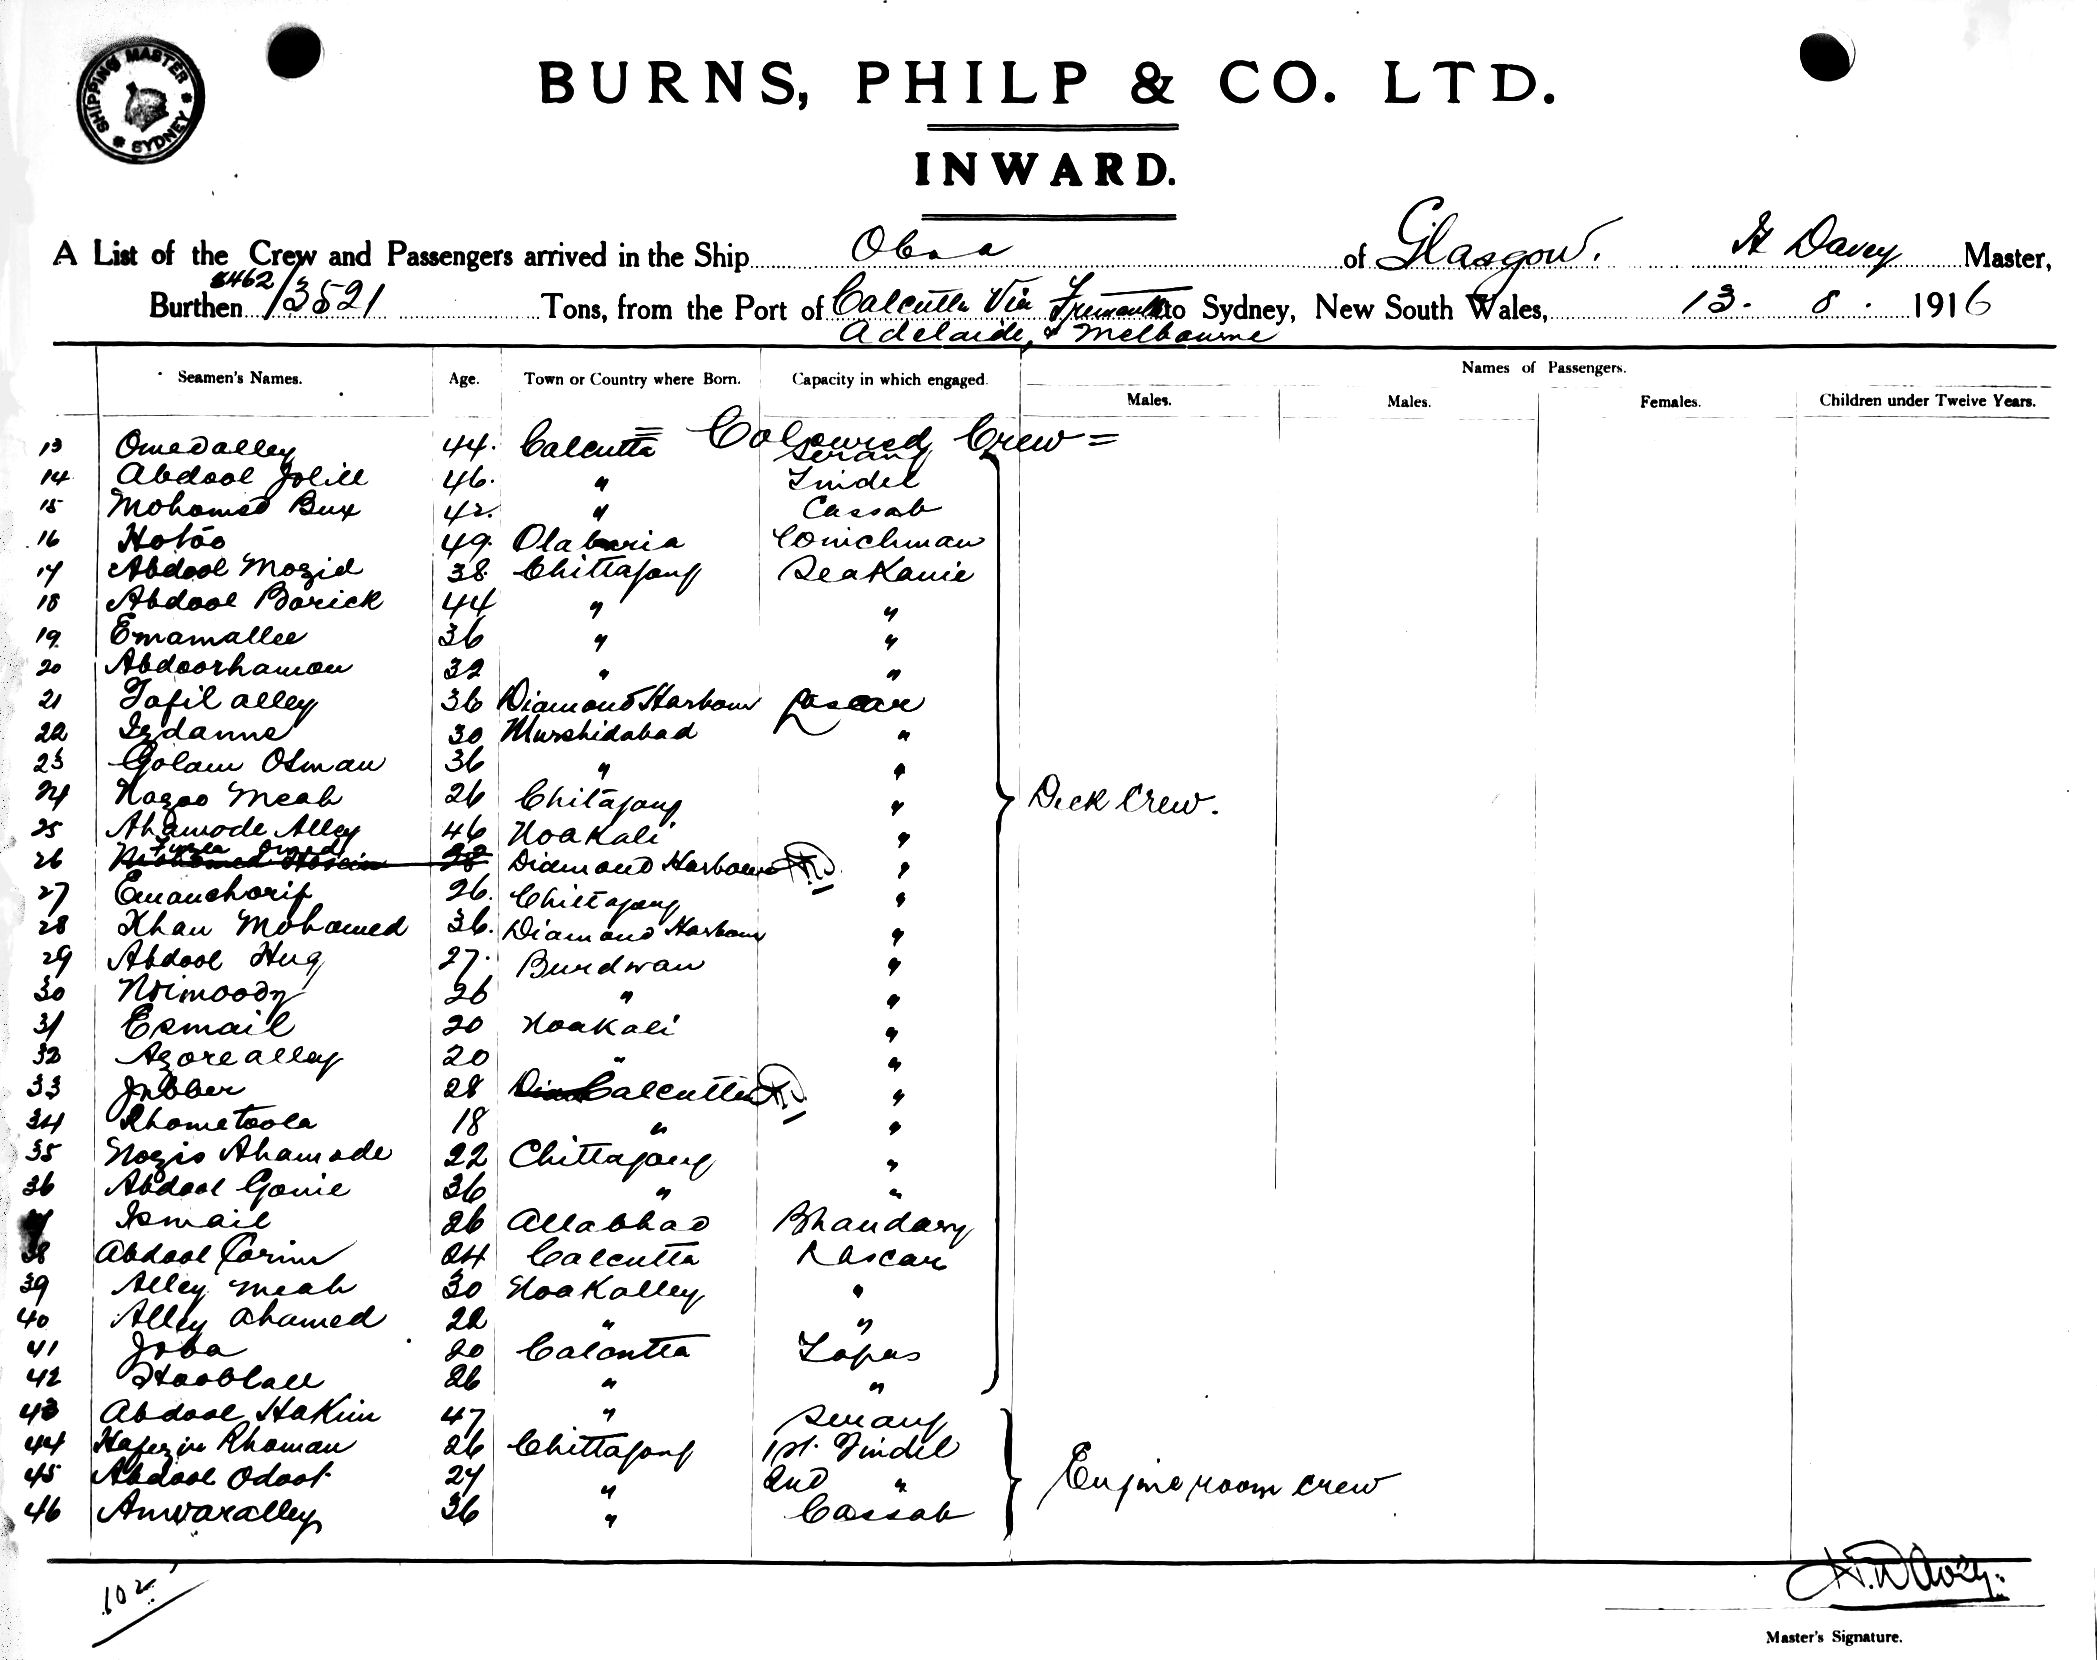 SHIPPING MASTER
SYDNEY
BURNS, PHILP & CO. LTD.
INWARD.
A List of the Crew and Passengers arrived in the Ship of Glasgow. H Davey Master,
8462/3521
Burthen Tons, from the Port of Calcutta Via Fremantle to Sydney, New South Wales, 13. 8. 1916
Adelaide, & Melbourne
Seamen's Names. Age. Town or Country where Born. Capacity in which engaged. Names of Passengers.
Males. Males. Females. Children under Twelve Years.
= Coloured Crew =
13 Omedalley 44. Calcutta Serang
14 Abdool Jolill 46. " Tindel
15 Mohomed Bux 42. " Cassab
16 49. Olaberia Conichman
17 Abdool Mozid 38. Chittagong SeaKunie
18 Abdool Borick 44 " "
19. Emamallee 36 " "
20 Abdoorhamon 32 " "
21 Tofil alley 36 Diamond Harbour Lascar
22 Izdanne 30 Murshidabad "
23 Golam Osman 36 " "
24 Nazoo Meah 26 Chitagong "
25 Ahamode Alley 46 Noakali "
26 Mohamed Hosein 28 Diamond Harbour "
27 Emanchorif 26. Chittagong "
28 Khan Mohamed 36. Diamond Harbour "
29 Abdool Huq 27. Burdwan "
30 Noimoody 26 " "
31 Esmail 20 Noakali "
32 Azorealley 20 " "
33 Jubber 28 Calcutta "
34 Rhometoola 18 " "
35 Nozir Ahamode 22 Chittagong "
36 Abdool Gonie 36 " "
37 Ismail 26 Allabhad Bhandary
38 Abdool Corim 24 Calcutta Lascar
39 Alley Meah 30 Noakalley "
40 Alley Ahamed 22 " "
41 Joba 20 Calcutta Topas
42 Hooblall 26 " "
Deck Crew.
43 Abdool HaKim 47 " Serang
44 Hafezir Rhoman 26 Chittagong 1st. Tindel
45 Abdool Odoot 27 " 2nd "
46 Anwaralley 36 " Cassab
Engine room crew
102
H. Davey.
Master's Signature.